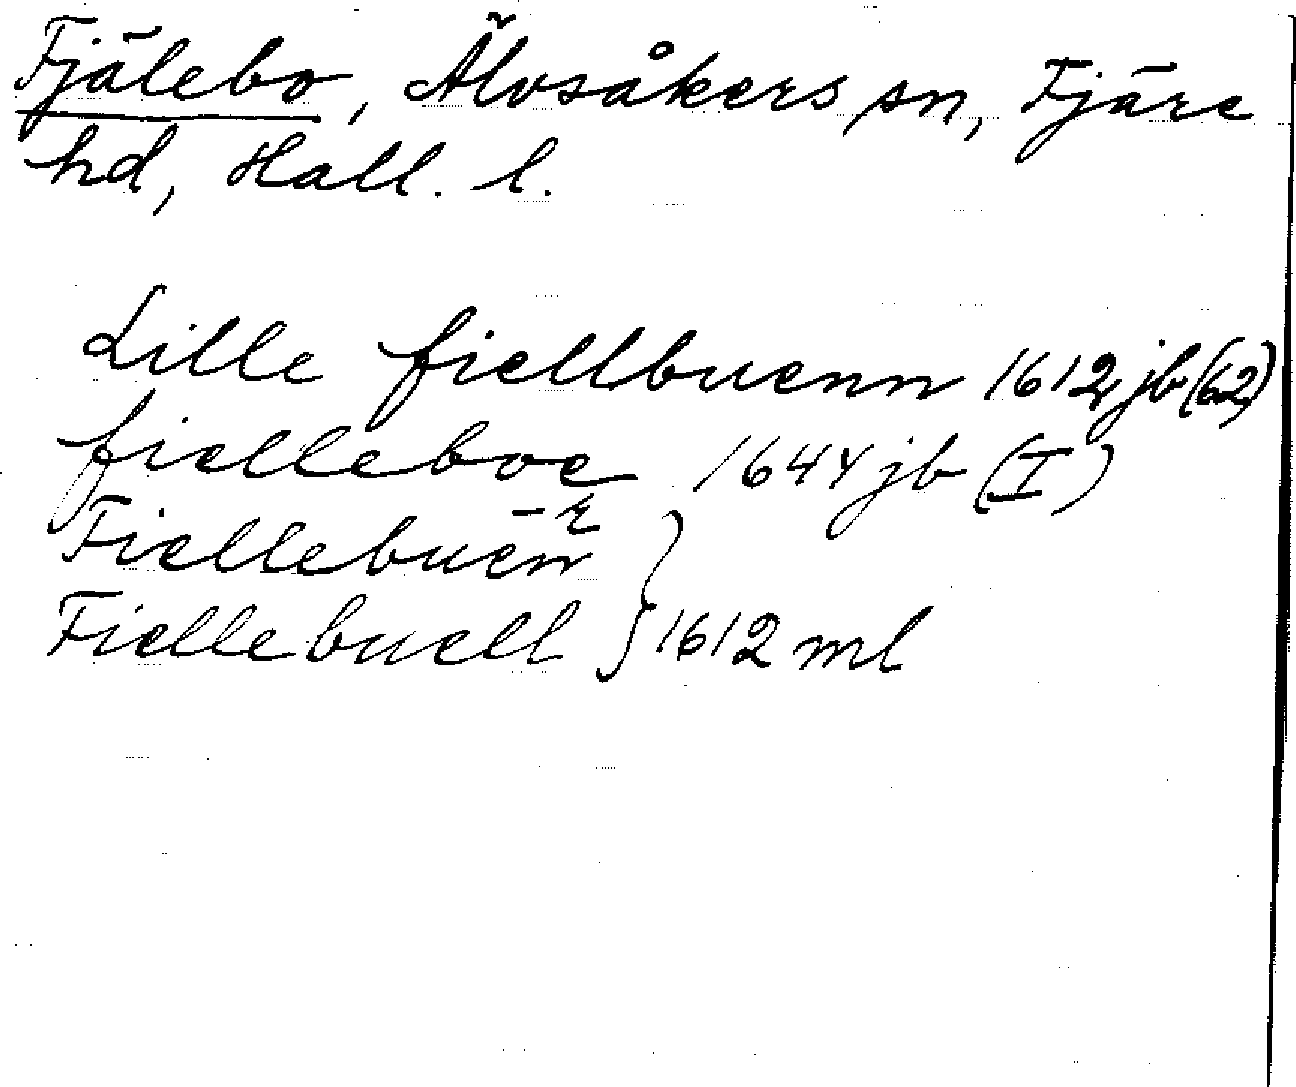 Fjälebo, Älvsåkers sn, Fjäre
hd, Hall. l.
Lille fiellbuenn 1612 jb (62)
fielleboe 1644 jb (I)
Fiellebuen̄
Fiellebuell } 1612 ml